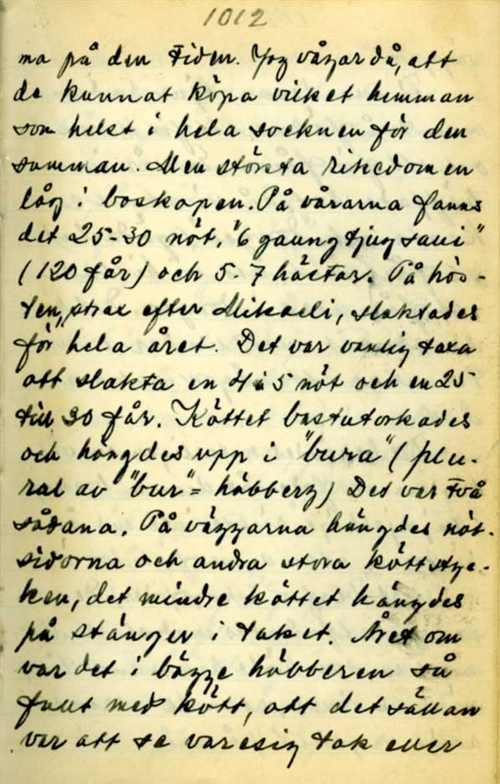 1012
ma på den tiden. Jag vågar då, att
de kunnat köpa vilket hemman
som helst i hela socknen för den
summan. Men största rikedomen
låg i boskapen. På vårarna fanns
det 25-30 nöt, "6 gaung tjug saui"
(120 får) och 5-7 hästar. På hös-
ten, strax efter Mikaeli, slaktades
för hela året. Det var vanlig taxa
att slakta en 4 à 5 nöt och en 25
till 30 får. Köttet bastutorkades
och hängdes upp i "bura" (plu-
ral av "bur" = häbberg) Det var två
sådana. På väggarna hängdes nöt-
sidorna och andra stora köttstyc-
ken, det mindre köttet hängdes
på stänger i taket. Året om
var det i bägge häbbren så
fullt med kött, att det sällan
var att se varesig tak eller